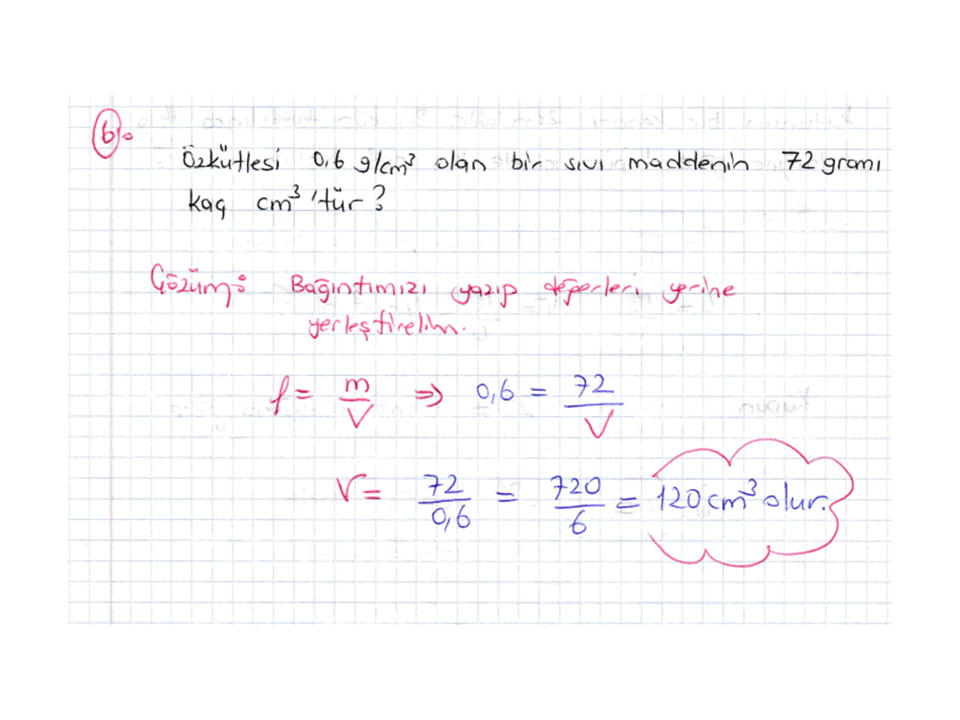 6.
Özkütlesi 0,6 g/cm³ olan bir sıvı maddenin 72 gramı
kaç cm³'tür?
Çözüm: Bağıntımızı yazıp değerleri yerine
yerleştirelim.
f = m/V ⇒ 0,6 = 72/V
V = 72/0,6 = 720/6 = 120 cm³ olur.